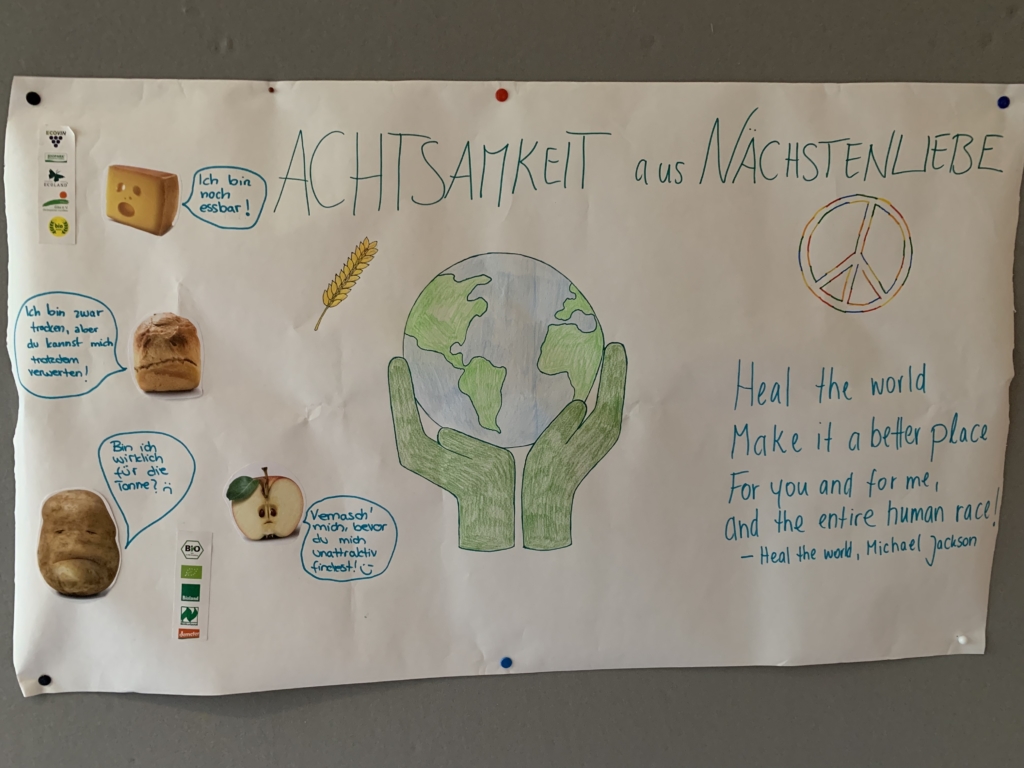 ACHTSAMKEIT aus NÄCHSTENLIEBE
ECOVIN
ECOLAND
Ich bin
noch
essbar!
Ich bin zwar
trocken, aber
du kannst mich
trotzdem
verwerten!
Bin ich
wirklich
für die
Tonne?
Vernasch'
mich, bevor
du mich
unattraktiv
findest!
BiO
Bioland
demeter
Heal the world
Make it a better place
For you and for me,
and the entire human race!
– Heal the world, Michael Jackson